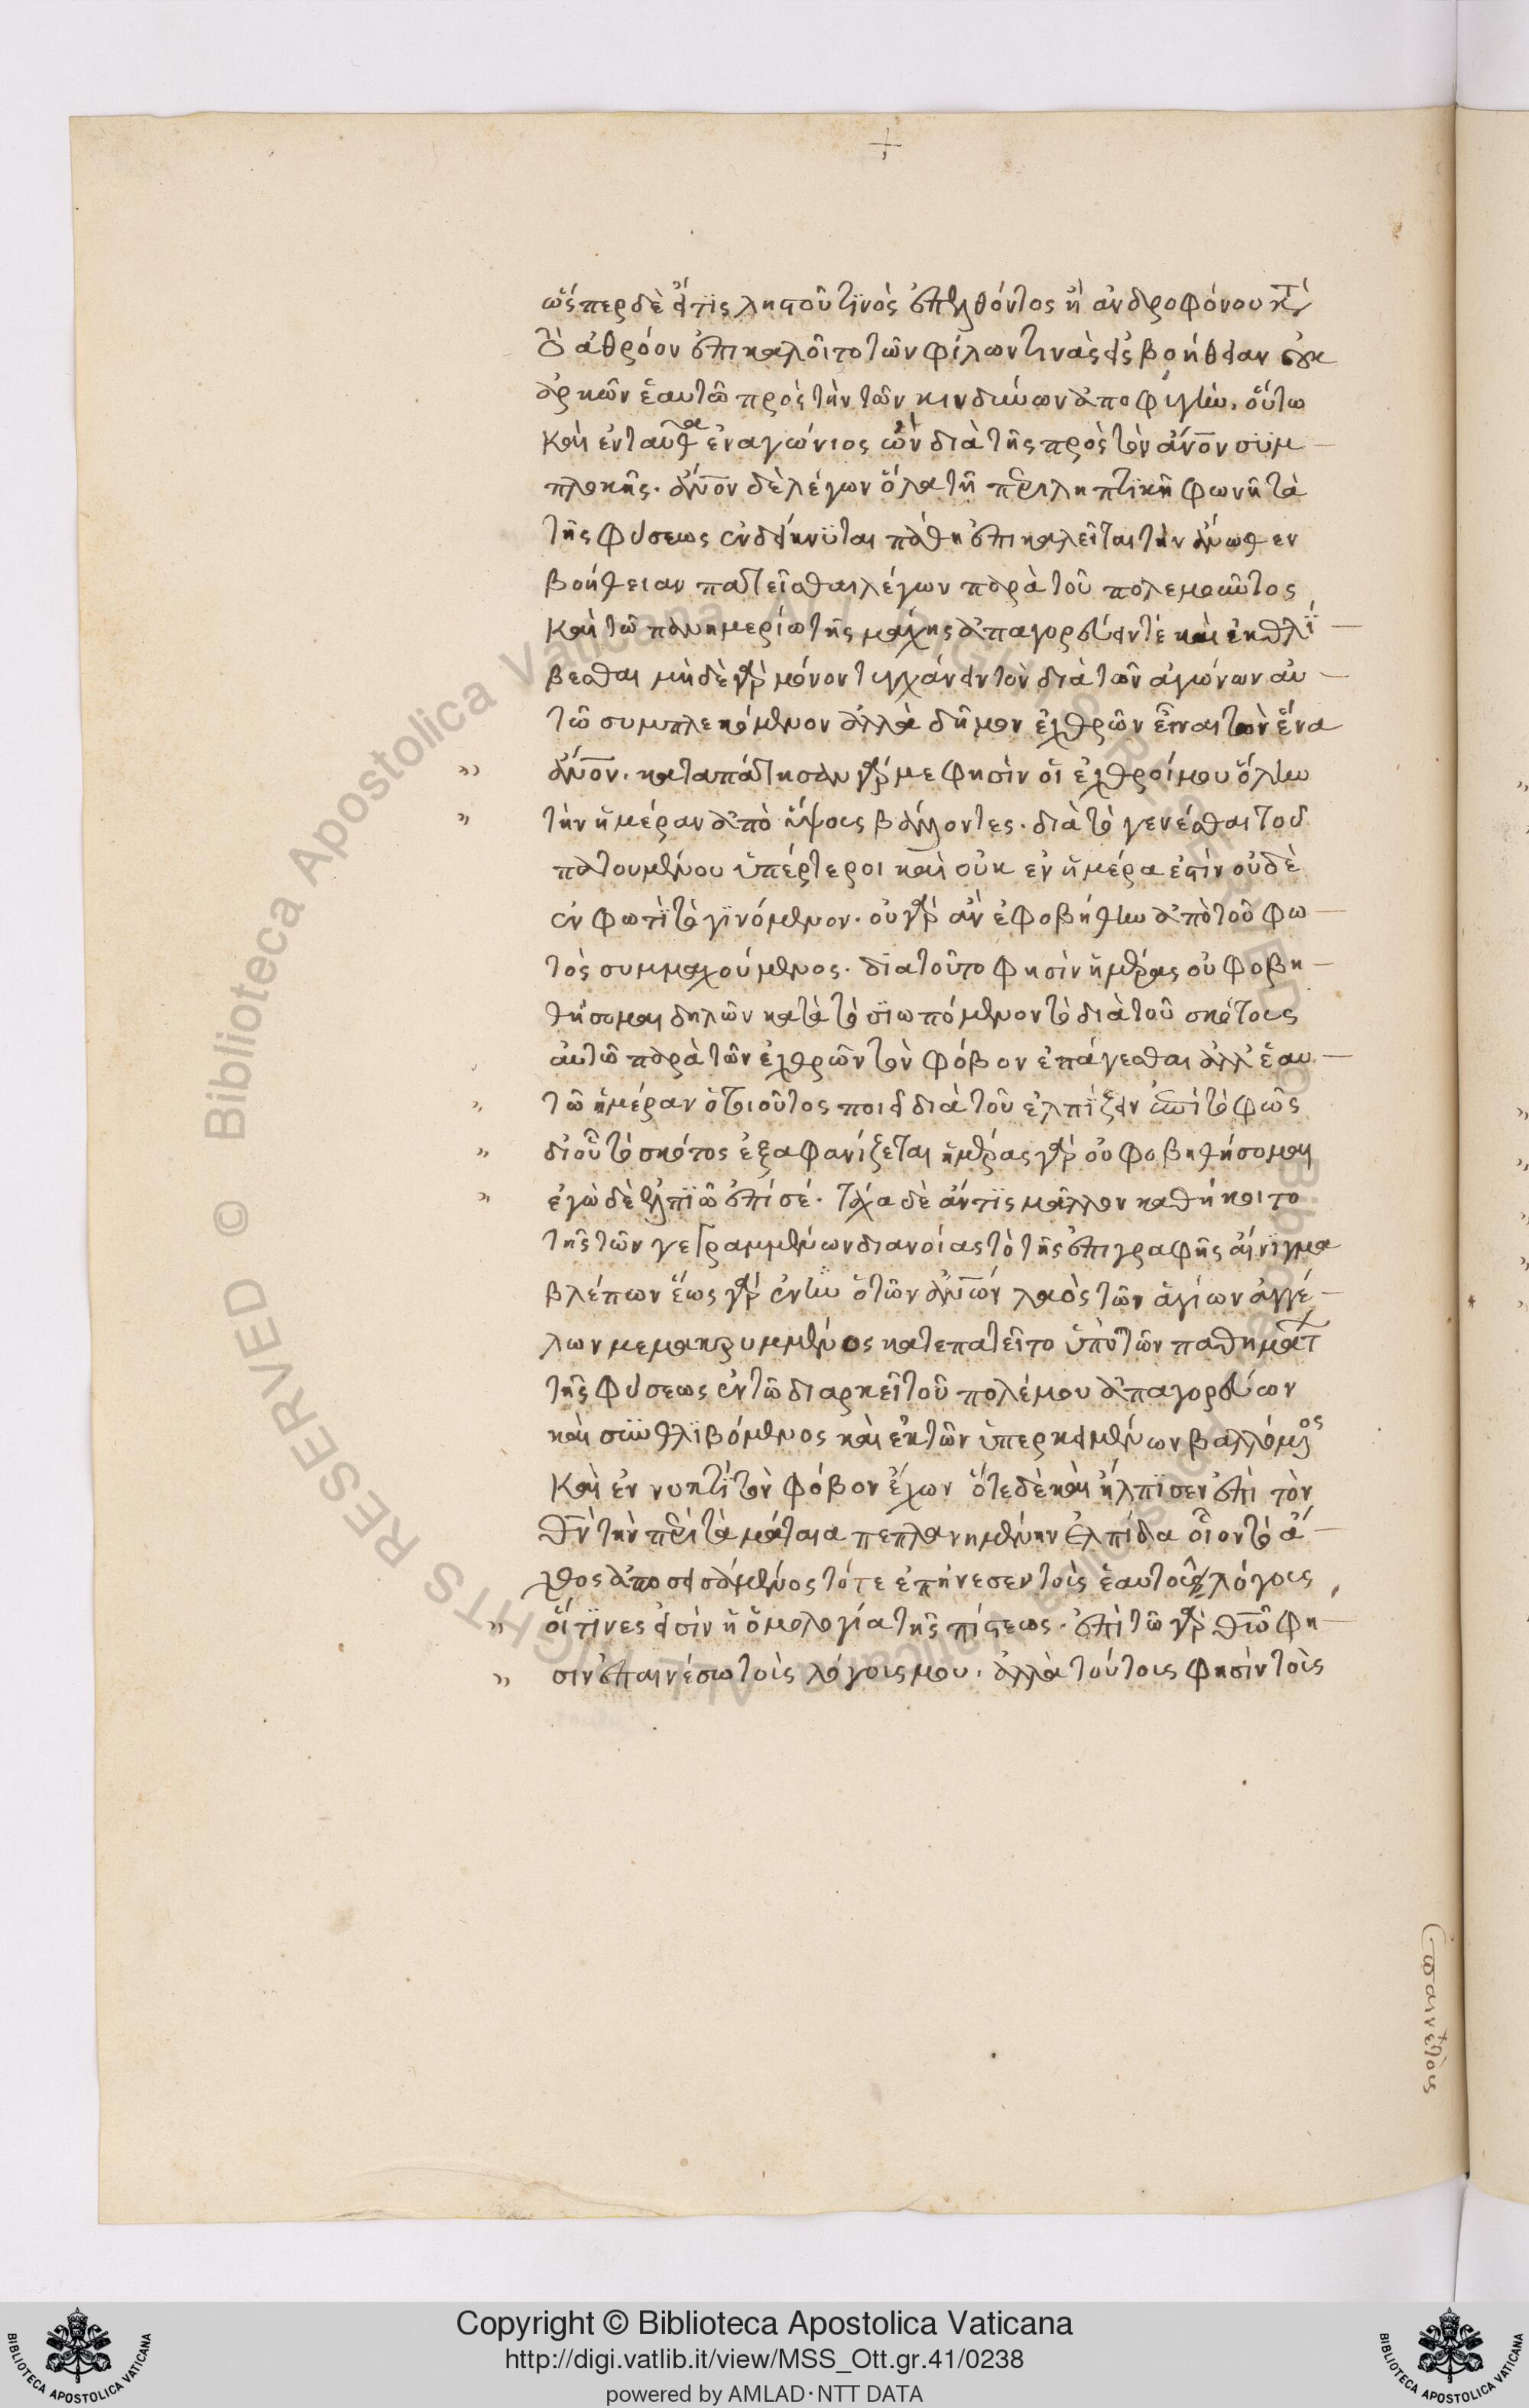 ὥσπερ δὲ εἴ τϊς ληστοῦ τϊνὸς ἐπελθόντος ἢ ἀνδροφόνου κατὰ
τὸ ἀθρόον ἐπικαλοῖτο τῶν φίλων τινὰς εἰς βοήθειαν οὐκ
ἀρκῶν ἑαυτῶ πρὸς τὴν τῶν κινδύνων ἀποφυγὴν. οὕτω
καὶ ἐνταῦθα ἐναγώνιος ὢν διὰ τῆς πρὸς τὸν ἄνον συμ-
πλοκῆς. ἄνον δὲ λέγων ὅλα τῆ περιληπτϊκῆ φωνῆ τὰ
τῆς φύσεως ἐνδείκνϋται πάθη ἐπικαλεῖται τὴν ἄνωθεν
βοήθειαν πατεῖσθαι λέγων παρὰ τοῦ πολεμοῦντος
καὶ τῶ πανημερίω τῆς μάχης ἀπαγορεύειν τὲ καὶ ἐκθλί-
βεσθαι μὴδὲ γὰρ μόνον τυγχάνειν τὸν διὰ τῶν ἀγώνων αὐ-
τῶ συμπλεκόμενον ἀλλὰ δῆμον ἐχθρῶν εἶναι τὸν ἕνα
ἄνον. καταπάτησαν γάρ με φησὶν οἱ ἐχθροί μου ὅλην
τὴν ἡμέραν ἀπὸ ὕψους βάλλοντες. διὰ τὸ γενέσθαι τοῦ
πατουμένου ὑπέρτεροι καὶ οὐκ ἐν ἡμέρα ἐστὶν οὐδὲ
ἐν φωτὶ τὸ γϊνόμενον. οὐ γὰρ ἂν ἐφοβήθην ἀπὸ τοῦ φω-
τὸς συμμαχούμενος. διατοῦτο φησὶν ἡμέρας οὐ φοβη-
θήσομαι δηλῶν κατὰ τὸ σϊωπόμενον τὸ διὰ τοῦ σκότους
αὐτῶ παρὰ τῶν ἐχθρῶν τὸν φόβον ἐπάγεσθαι ἀλλ' ἑαυ-
τῶ ἡμέραν ὁ τοιοῦτος ποιεῖ διὰ τοῦ ἐλπίζειν ἐπὶ τὸ φῶς
δι οὗ τὸ σκότος ἐξαφανίζεται ἡμέρας γὰρ οὐ φοβηθήσομαι
ἐγὼ δὲ ἐλπϊῶ ἐπί σέ. τάχα δὲ ἄν τϊς μᾶλλον καθήκοιτο
τῆς τῶν γεγραμμένων διανοίας τὸ τῆς ἐπιγραφῆς αἴνϊγμα
βλέπων ἕως γὰρ ἐν ᾧ ὁ τῶν ἀνῶν λαὸς τῶν ἁγίων ἀγγέ-
λων μεμακρυμμένος κατεπατεῖτο ὑπὸ τῶν παθημάτων
τῆς φύσεως ἐν τῶ διαρκεῖ τοῦ πολέμου ἀπαγορεύων
καὶ συνθλϊβόμενος καὶ ἐκ τῶν ὑπερκειμένων βαλλόμενος
καὶ ἐν νυκτὶ τὸν φόβον ἔχων ὅτε δὲ καὶ ἤλπϊσεν ἐπὶ τὸν
θν τὴν περὶ τὰ μάταια πεπλανημένην ἐλπίδα οἷον τὸ ἄ-
χθος ἀποσεισάμενος τότε ἐπήνεσεν τοῖς ἑαυτοῦ λόγοις
οἵ τϊνες εἰσὶν ἡ ὁμολογία τῆς πίστεως. ἐπὶ τῶ γὰρ θῶ φη-
σιν ἐπαινέσω τοῖς λόγοις μου. ἀλλὰ τούτοις φησὶν τοῖς
Copyright © Biblioteca Apostolica Vaticana
http://digi.vatlib.it/view/MSS_Ott.gr.41/0238
powered by AMLAD·NTT DATA
BIBLIOTECA APOSTOLICA VATICANA
BIBLIOTECA APOSTOLICA VATICANA
Biblioteca Apostolica Vaticana ALL RIGHTS RESERVED ©